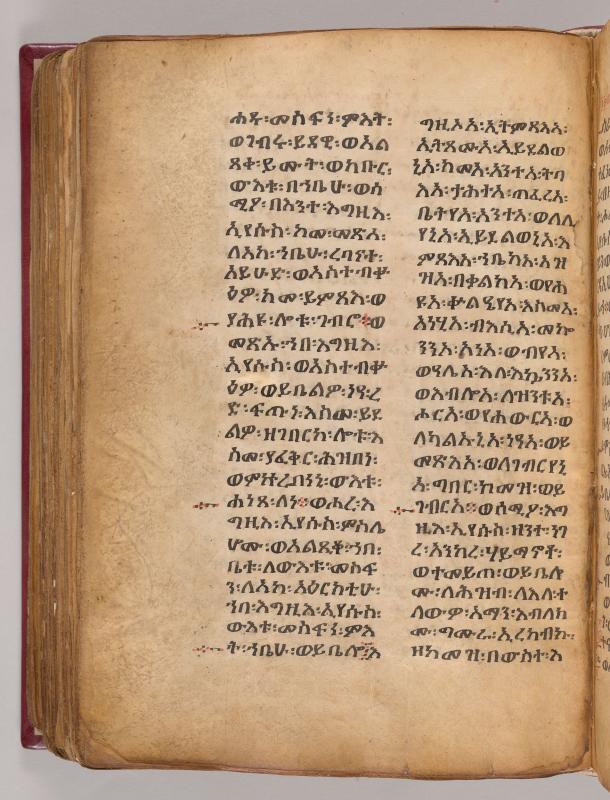 ሐዱ፡መስፍን፡ምእት፡
ወገብሩ፡ይደዊ፡ወአል
ጸቀ፡ይሙት፡ወክቡር፡
ውእቱ፡በኀቤሁ፡ወሰ
ሚዖ፡በእንተ፡እግዚእ፡
ኢየሱስ፡ከመ፡መጽአ፡
ለአከ፡ኀቤሁ፡ረባናተ፡
አይሁድ፡ወአስተብቊ
ዕዎ፡ከመ፡ይምጻእ፡ወ
ያሕዩ፡ሎቱ፡ገብሮ፡ወ
መጽኡ፡ኀበ፡እግዚእ፡
ኢየሱስ፡ወአስተብቊ
ዕዎ፡ወይቤልዎ፡ነዓ፡ረ
ድ፡ፍጡነ፡እስመ፡ይደ
ልዎ፡ዘገበርከ፡ሎቱ፡እ
ስመ፡ያፈቅር፡ሕዝበነ፡
ወምኵራበነኒ፡ውእቱ፡
ሐነጸ፡ለነ፡ወሖረ፡እ
ግዚእ፡ኢየሱስ፡ምስሌ
ሆሙ፡ወአልጺቆ፡ኀበ፡
ቤቱ፡ለውእቱ፡መስፍ
ን፡ለአከ፡አዕርክቲሁ፡
ኀበ፡እግዚእ፡ኢየሱስ፡
ውእቱ፡መስፍን፡ምእ
ት፡ኀቤሁ፡ወይቤሎ፡እ
ግዚኦአ፡ኢትምጻእአ፡
ኢትጻሙአ፡ኢይደልወ
ኒአ፡ከመአ፡አንተአ፡ትባ
እአ፡ታሕተአ፡ጠፈረአ፡
ቤትየአ፡አንተአ፡ወሊሊ
የኒአ፡ኢይደልወኒአ፡እ
ምጻእአ፡ኀቤከአ፡አዝ
ዝአ፡በቃልከአ፡ወየሐ
ዩአ፡ቍልዔየአ፡እስመአ፡
አነሂአ፡ብእሲአ፡መኰ
ንንአ፡አነአ፡ወብየአ፡
ወዓሌአ፡እለእኴንንአ፡
ወእብሎአ፡ለዝንቱአ፡
ሖርአ፡ወየሐውርአ፡ወ
ለካልኡኒአ፡ነዓአ፡ወይ
መጽእአ፡ወለገብርየኒ
አ፡ግበር፡ከመዝ፡ወይ
ገብርአ፡ወሰሚዖ፡እግ
ዚእ፡ኢየሱስ፡ዘንተ፡ነገ
ረ፡አንከረ፡ሃይማኖቶ፡
ወተመይጠ፡ወይቤሎ
ሙ፡ለሕዝብ፡ለእለ፡ተ
ለውዎ፡አማን፡እብለክ
ሙ፡ግሙራ፡ኢረከብኩ፡
ዘከመዝ፡በውስተ፡እ